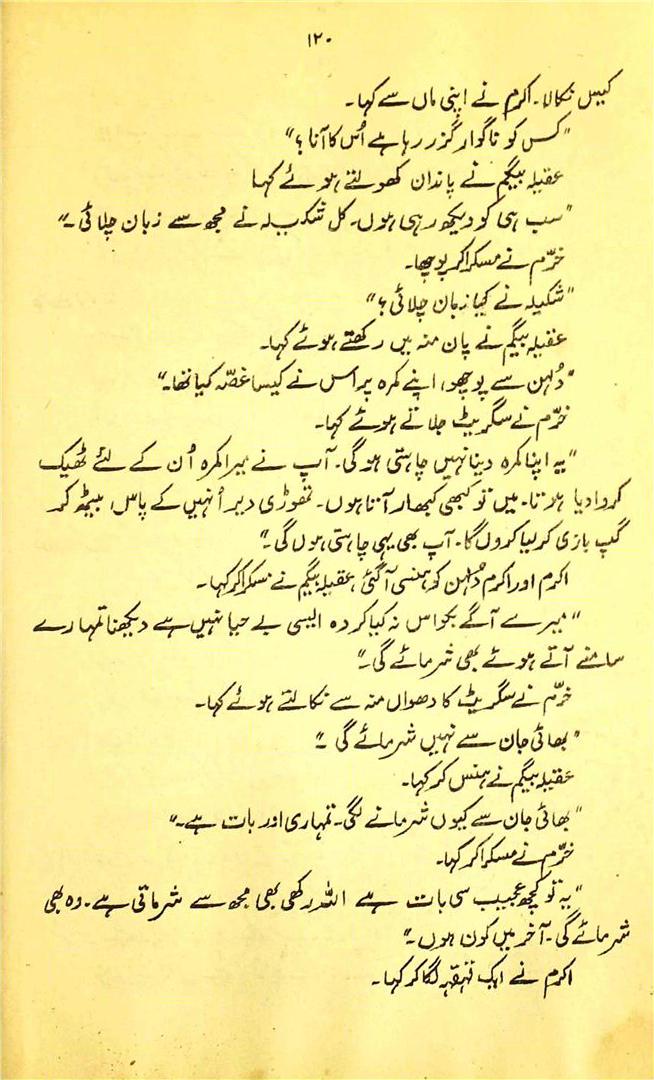 ۱۲۰
کیس نکالا۔ اکرم نے اپنی ماں سے کہا۔
"کس کو ناگوار گزر رہا ہے اُس کا آنا؟"
عقیلہ بیگم نے پاندان کھولتے ہوئے کہا
"سب ہی کو دیکھ رہی ہوں۔ کل شکیلہ نے مجھ سے زبان چلائی۔"
خرّم نے مسکرا کر پوچھا۔
"شکیلہ نے کیا زبان چلائی؟"
عقیلہ بیگم نے پان منہ میں رکھتے ہوئے کہا۔
"دُلہن سے پوچھو، اپنے کمرہ پر اُس نے کیسا غصّہ کیا تھا۔"
خرّم نے سگریٹ جلاتے ہوئے کہا۔
"یہ اپنا کمرہ دینا نہیں چاہتی ہو گی۔ آپ نے میرا کمرہ اُن کے لئے ٹھیک
کروا دیا ہوتا۔ میں تو کبھی کبھار آتا ہوں۔ تھوڑی دیر اُنہیں کے پاس بیٹھ کر
گپ بازی کر لیا کروں گا۔ آپ بھی یہی چاہتی ہوں گی۔"
اکرم اور اکرم دُلہن کو ہنسی آ گئی، عقیلہ بیگم نے مسکرا کر کہا۔
"میرے آگے بکواس نہ کیا کر وہ ایسی بے حیا نہیں ہے دیکھنا تمہارے
سامنے آتے ہوئے بھی شرمائے گی۔"
خرّم نے سگریٹ کا دھواں منہ سے نکالتے ہوئے کہا۔
"بھائی جان سے نہیں شرمائے گی۔"
عقیلہ بیگم نے ہنس کر کہا۔
"بھائی جان سے کیوں شرمانے لگی۔ تمہاری اور بات ہے۔"
خرّم نے مسکرا کر کہا۔
"یہ تو کچھ عجیب سی بات ہے اللہ رکھی بھی مجھ سے شرماتی ہے۔ وہ بھی
شرمائے گی۔ آخر میں کون ہوں۔"
اکرم نے ایک قہقہہ لگا کر کہا۔